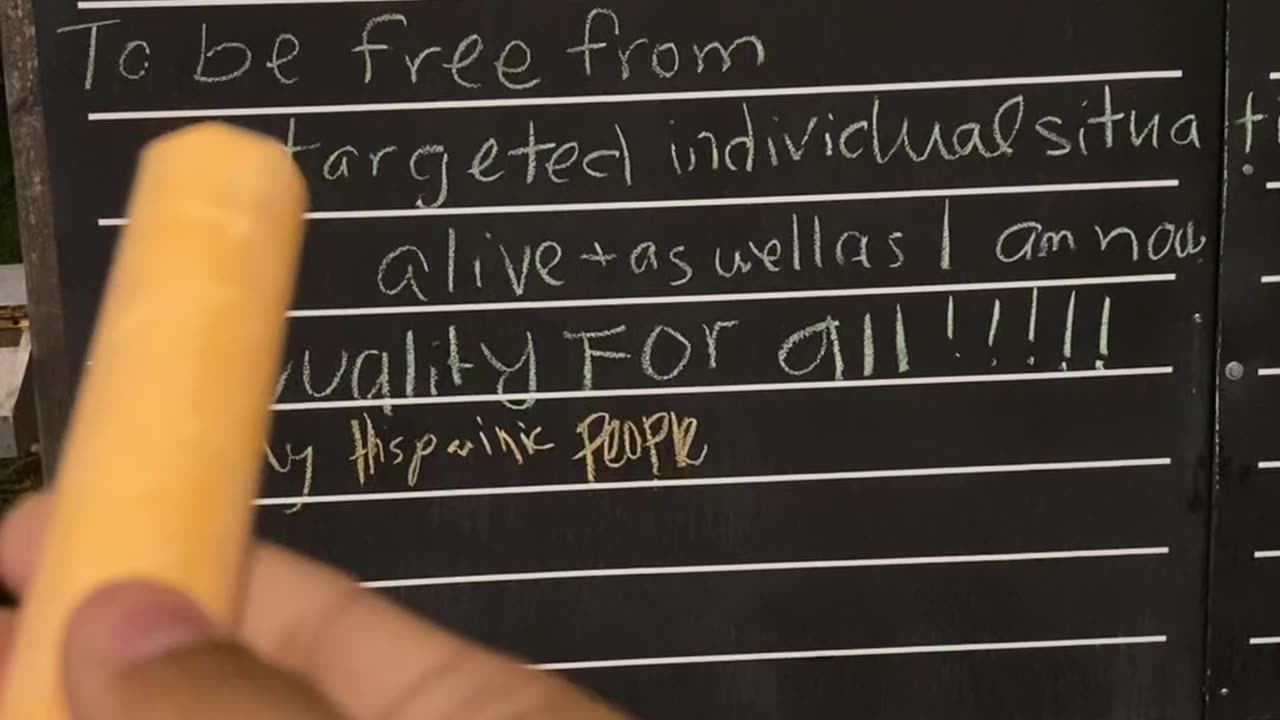 To be free from
targeted individual situati
alive + as well as I am now
uality For all!!!!!
y Hispainic PEOPLE